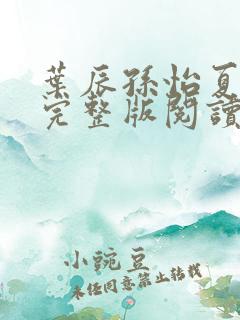 葉辰孫怡夏
完整版閱讀
小豌豆
未經同意禁止轉載